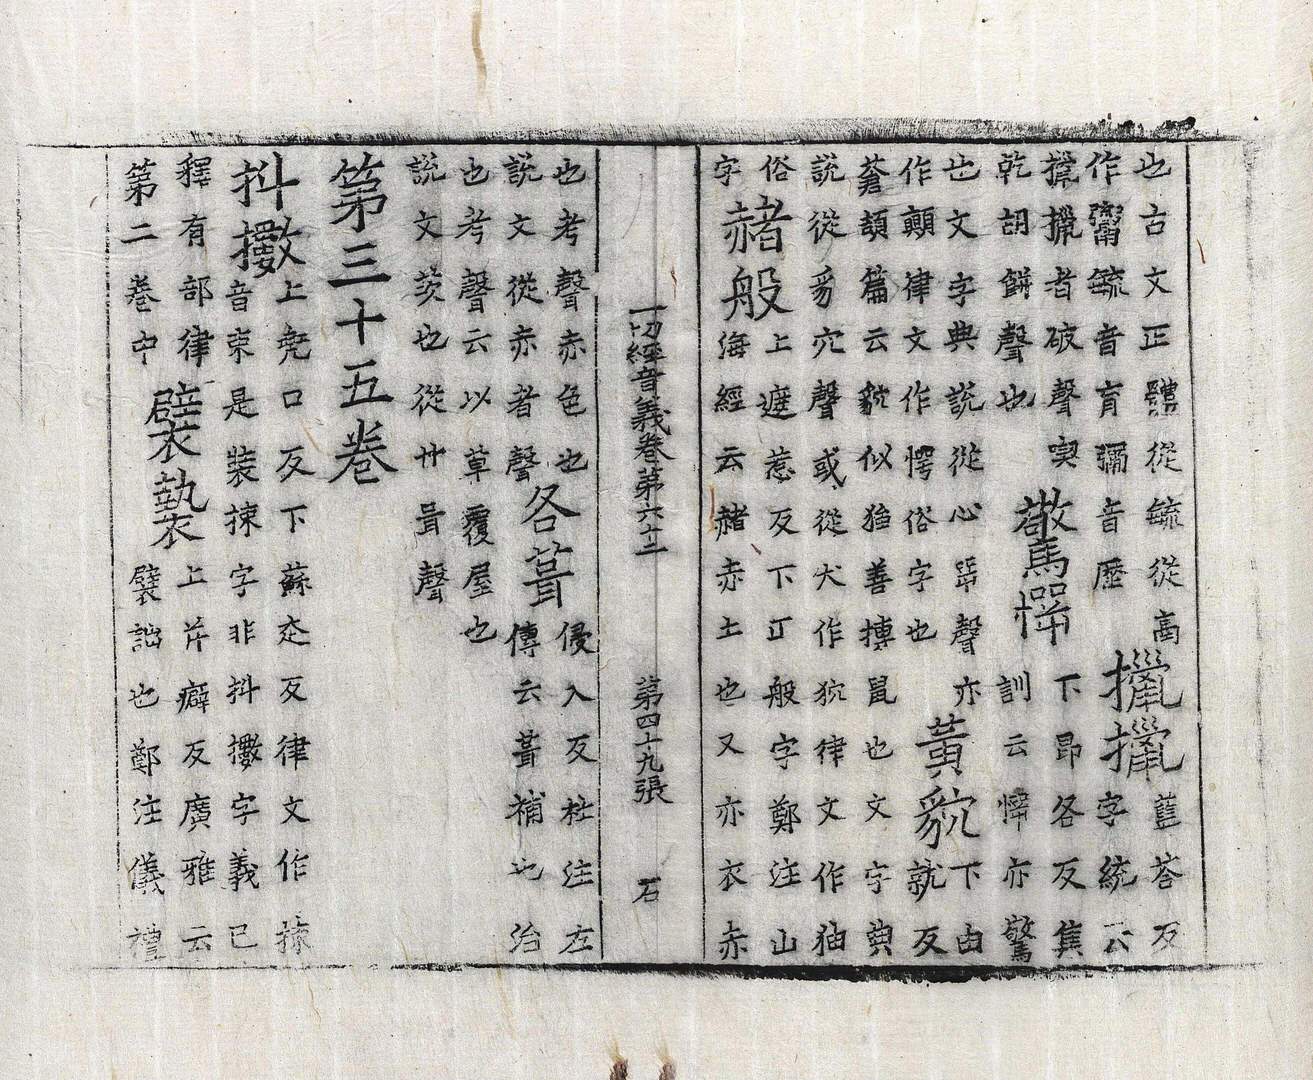 也古文正體從毓從鬲
作鬻毓音育彌音歷
擸擸
藍荅反
字統云
擸擸者破聲喫
乾胡餅聲也
驚㦍
下昂各反集
訓云㦍亦驚
也文字典說從心咢聲亦
作顛律文作愕俗字也
黃貁
下由
就反
蒼頡篇云貁似猫善摶鼠也文字典
說從豸穴聲或從犬作狖律文作㹨
俗
字
赭般
上遮惹反下丁般字鄭注山
海經云赭赤土也又亦衣赤
一切經音義卷第六十二 第四十九張 石
也考聲赤色也
說文從赤者聲
各葺
侵入反杜注左
傳云葺補也治
也考聲云以草覆屋也
說文茨也從艸咠聲
第三十五卷
抖擻
上兜口反下蘇走反律文作捒
音束是裝捒字非抖擻字義已
釋有部律
第二卷中
襞褺
上并癖反廣雅云
襞詘也鄭注儀禮